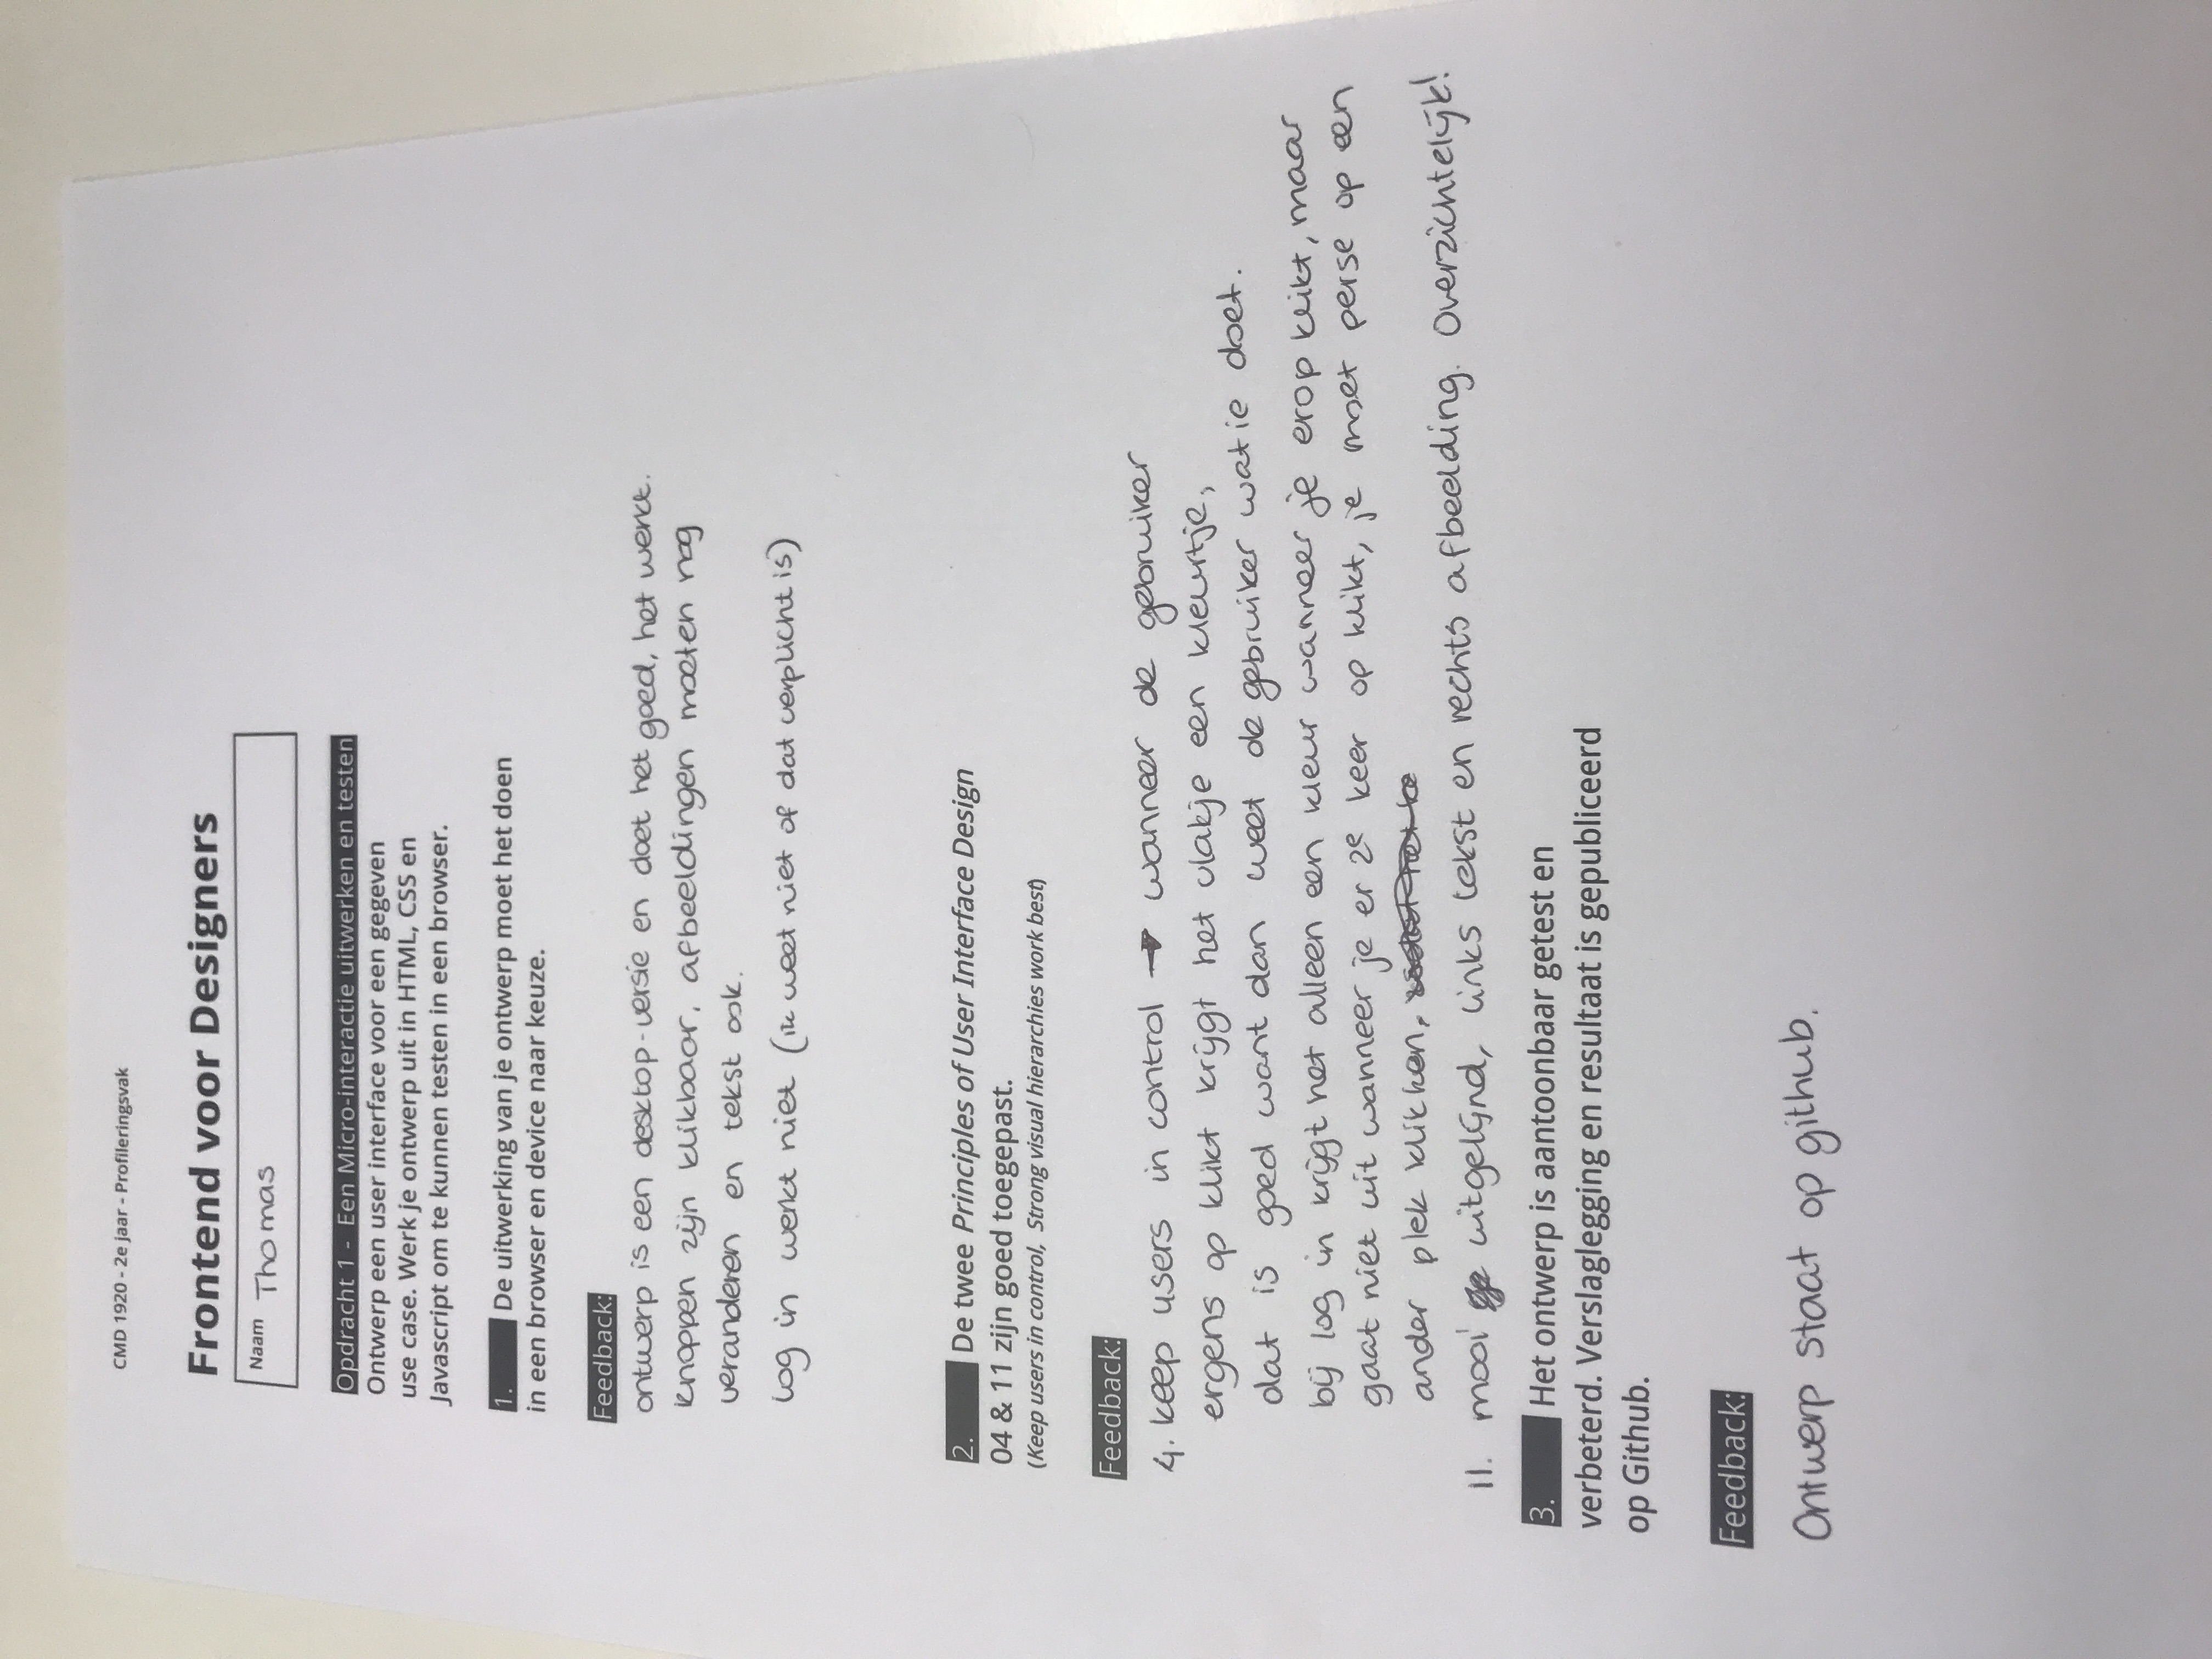 CMD 1920 - 2e jaar - Profileringsvak
Frontend voor Designers
Naam Thomas
Opdracht 1 - Een Micro-interactie uitwerken en testen
Ontwerp een user interface voor een gegeven
use case. Werk je ontwerp uit in HTML, CSS en
Javascript om te kunnen testen in een browser.
1. De uitwerking van je ontwerp moet het doen
in een browser en device naar keuze.
Feedback:
ontwerp is een desktop-versie en doet het goed, het werkt.
knoppen zijn klikbaar, afbeeldingen moeten nog
veranderen en tekst ook.
log in werkt niet (ik weet niet of dat verplicht is)
2. De twee Principles of User Interface Design
04 & 11 zijn goed toegepast.
(Keep users in control, Strong visual hierarchies work best)
Feedback:
4. keep users in control → wanneer de gebruiker
ergens op klikt krijgt het vlakje een kleurtje,
dat is goed want dan weet de gebruiker wat ie doet.
bij log in krijgt het alleen een kleur wanneer je erop klikt, maar
gaat niet uit wanneer je er 2e keer op klikt, je moet perse op een
ander plek klikken,
11. mooi uitgelijnd, links tekst en rechts afbeelding. Overzichtelijk!
3. Het ontwerp is aantoonbaar getest en
verbeterd. Verslaglegging en resultaat is gepubliceerd
op Github.
Feedback:
Ontwerp staat op github.